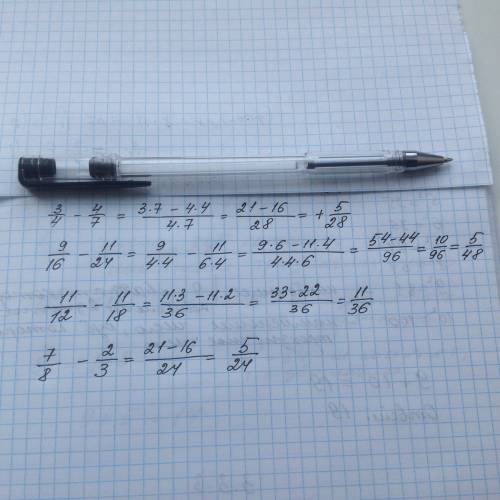 3/4 - 4/7 = (3·7 - 4·4)/(4·7) = (21-16)/28 = +5/28
9/16 - 11/24 = 9/(4·4) - 11/(6·4) = (9·6 - 11·4)/(4·4·6) = (54-44)/96 = 10/96 = 5/48
11/12 - 11/18 = (11·3 - 11·2)/36 = (33-22)/36 = 11/36
7/8 - 2/3 = (21-16)/24 = 5/24